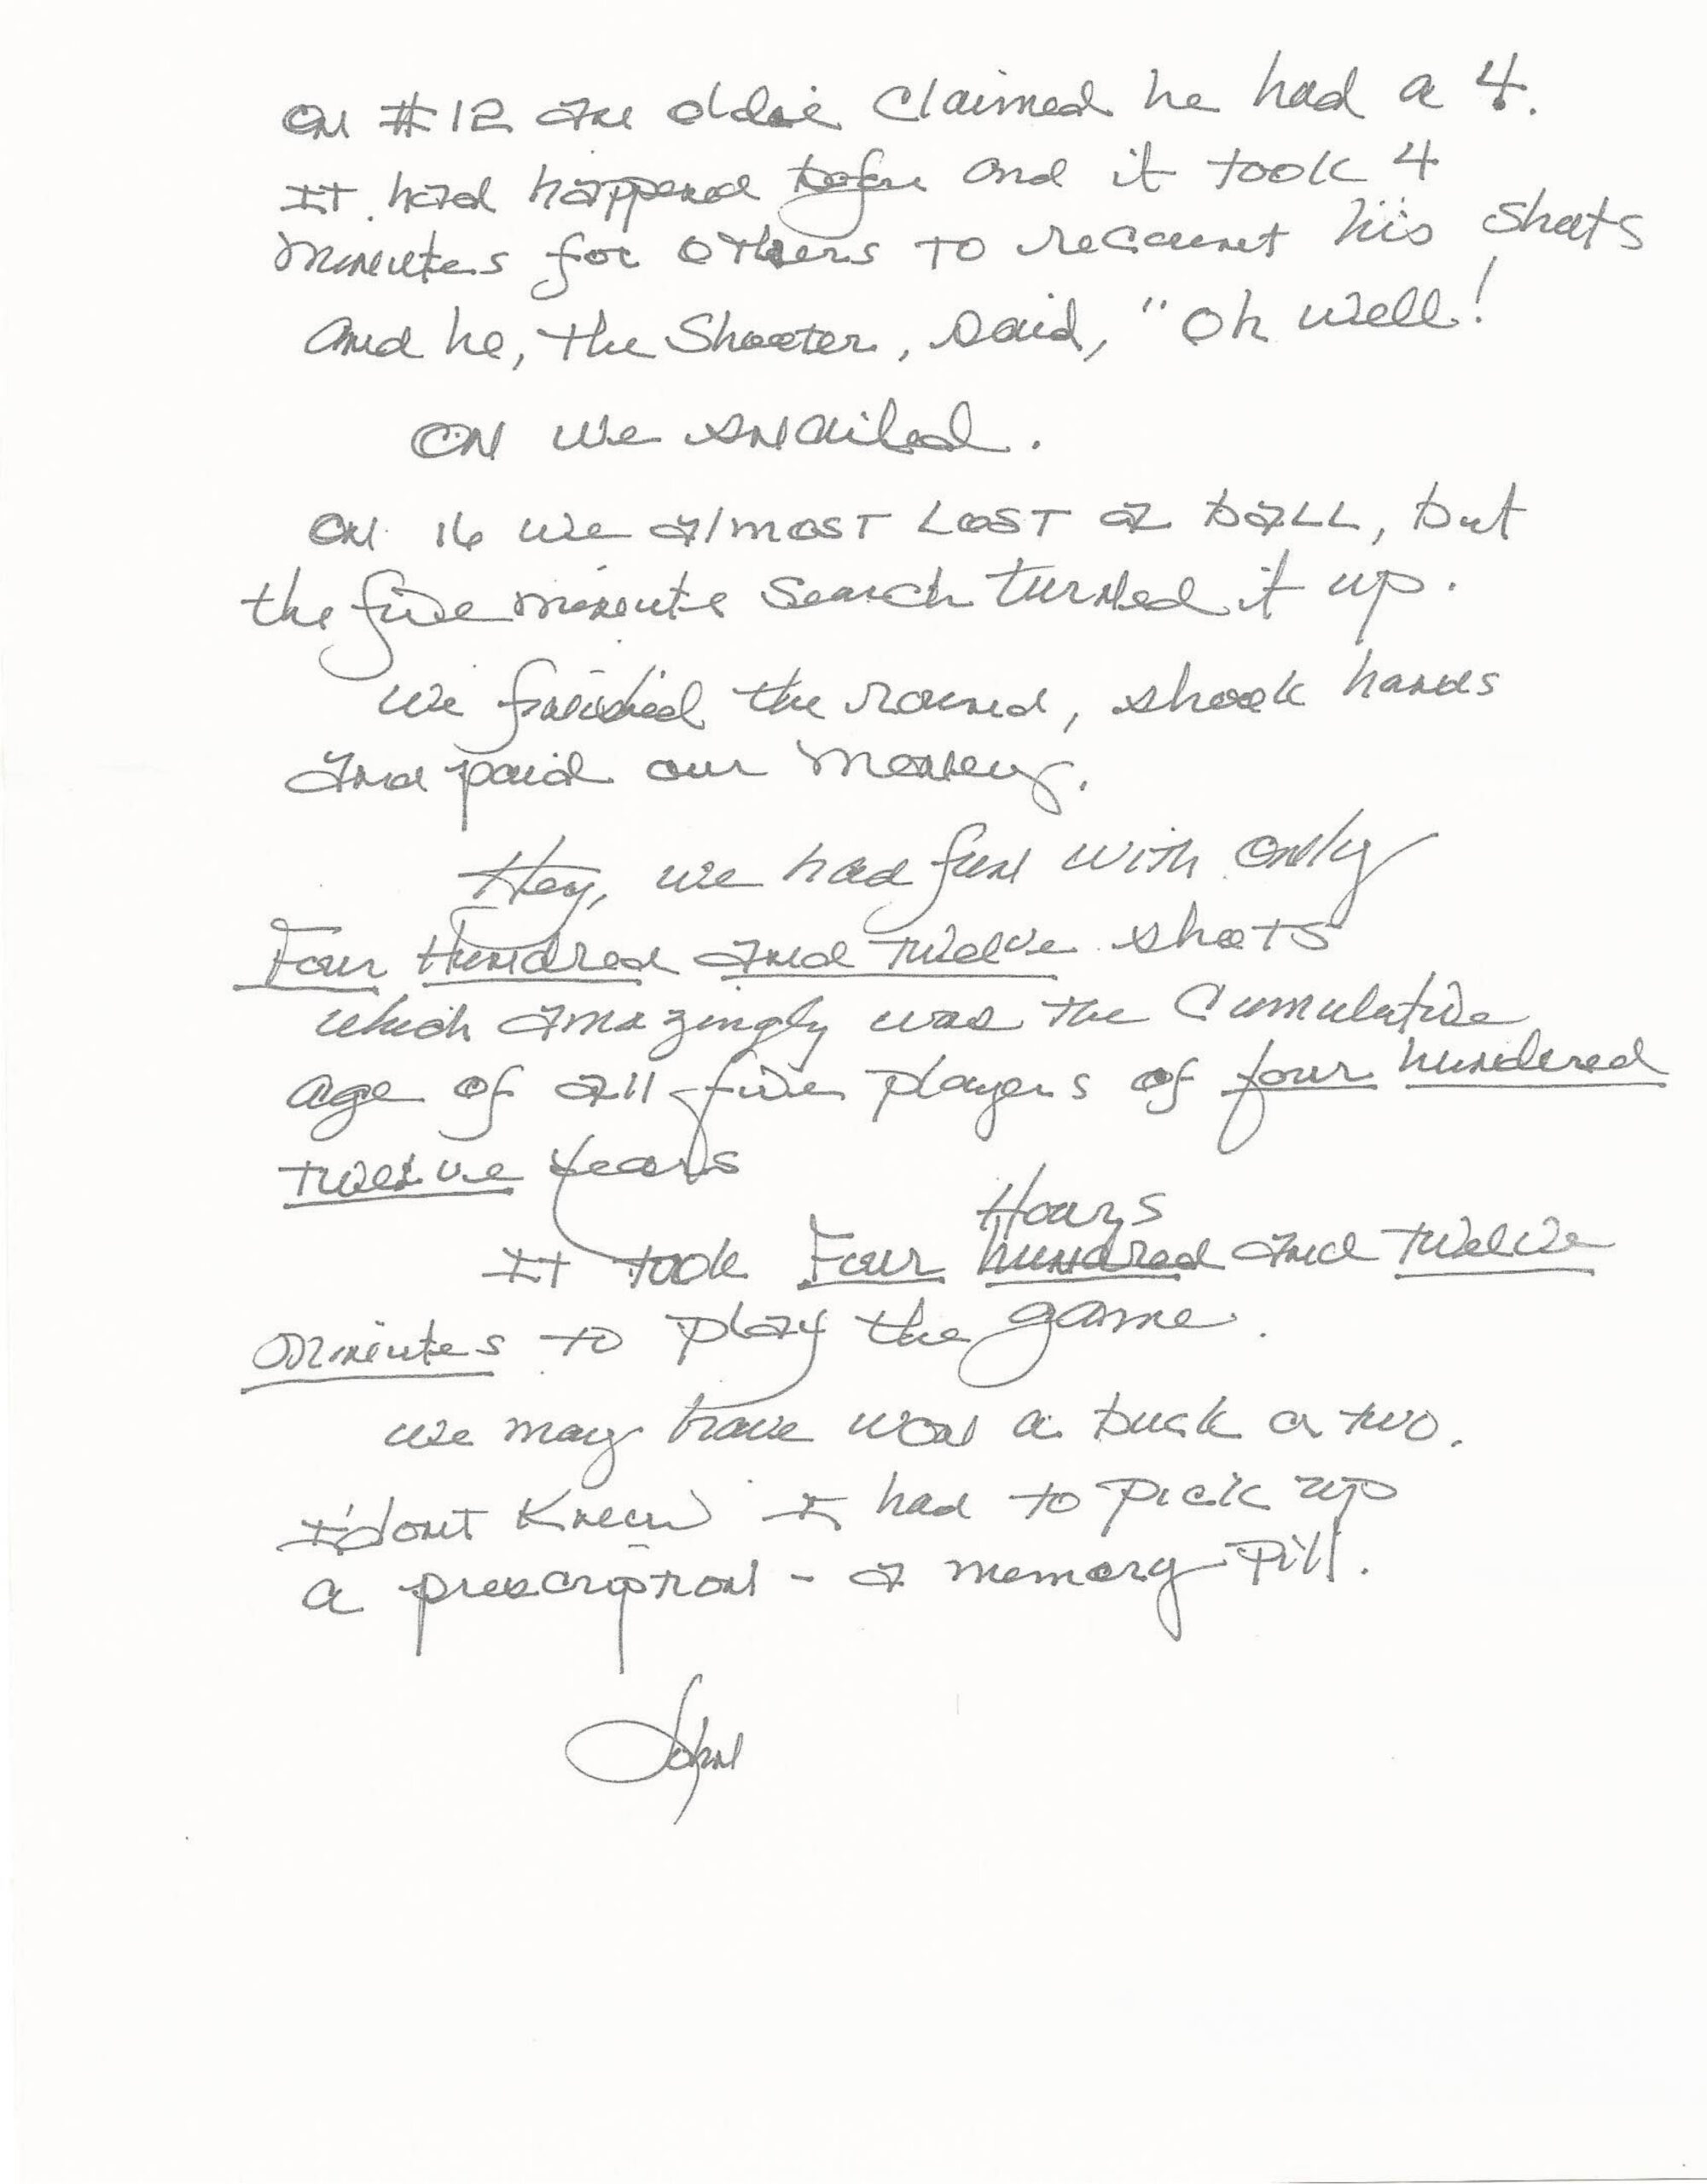 On #12 one oldie claimed he had a 4.
It had happened before and it took 4
minutes for others to recount his shots
and he, the Shooter, said, "Oh well!
On we snailed.
On 16 we almost Lost a ball, but
the five minute search turned it up.
We finished the round, shook hands
and paid our money.
Hey, we had fun with only
Four Hundred and twelve shots
which amazingly was the cumulative
age of all five players of four hundered
twelve years
Hours
It took Four hundred and twelve
minutes to play the game.
We may have won a buck or two.
I dont know I had to pick up
a prescription - a memory Pill.
John